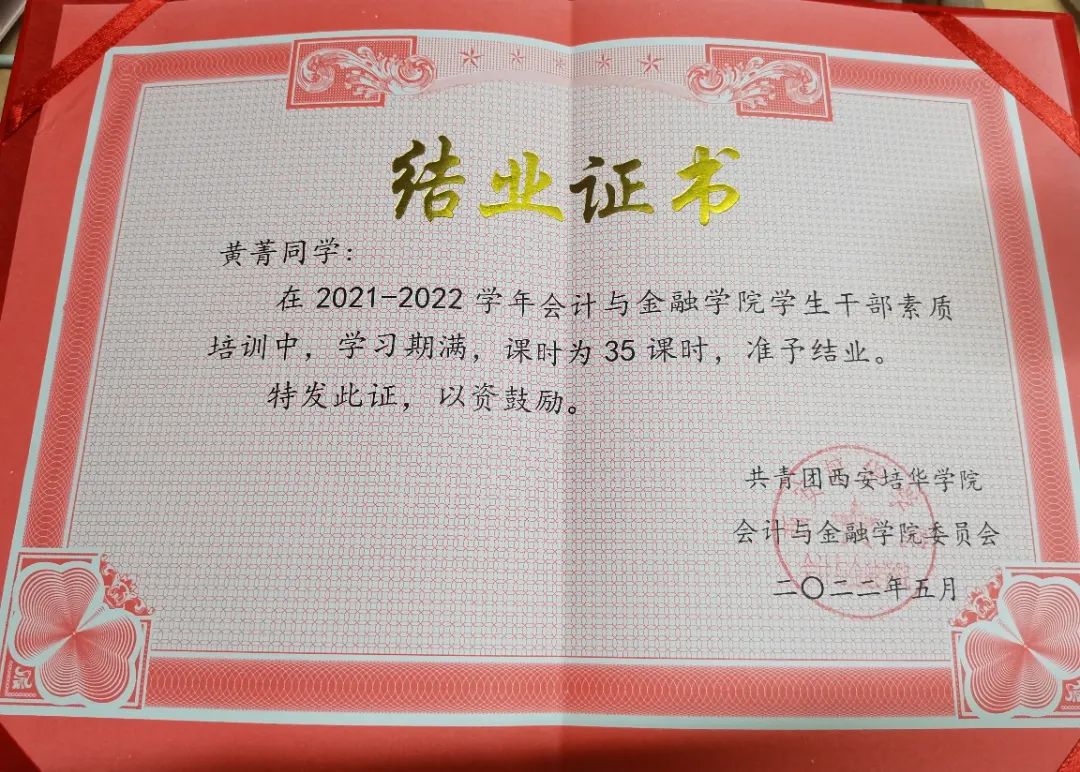 结业证书
黄菁同学：
在 2021-2022 学年会计与金融学院学生干部素质
培训中，学习期满，课时为 35 课时，准予结业。
特发此证，以资鼓励。
共青团西安培华学院
会计与金融学院委员会
二〇二二年五月